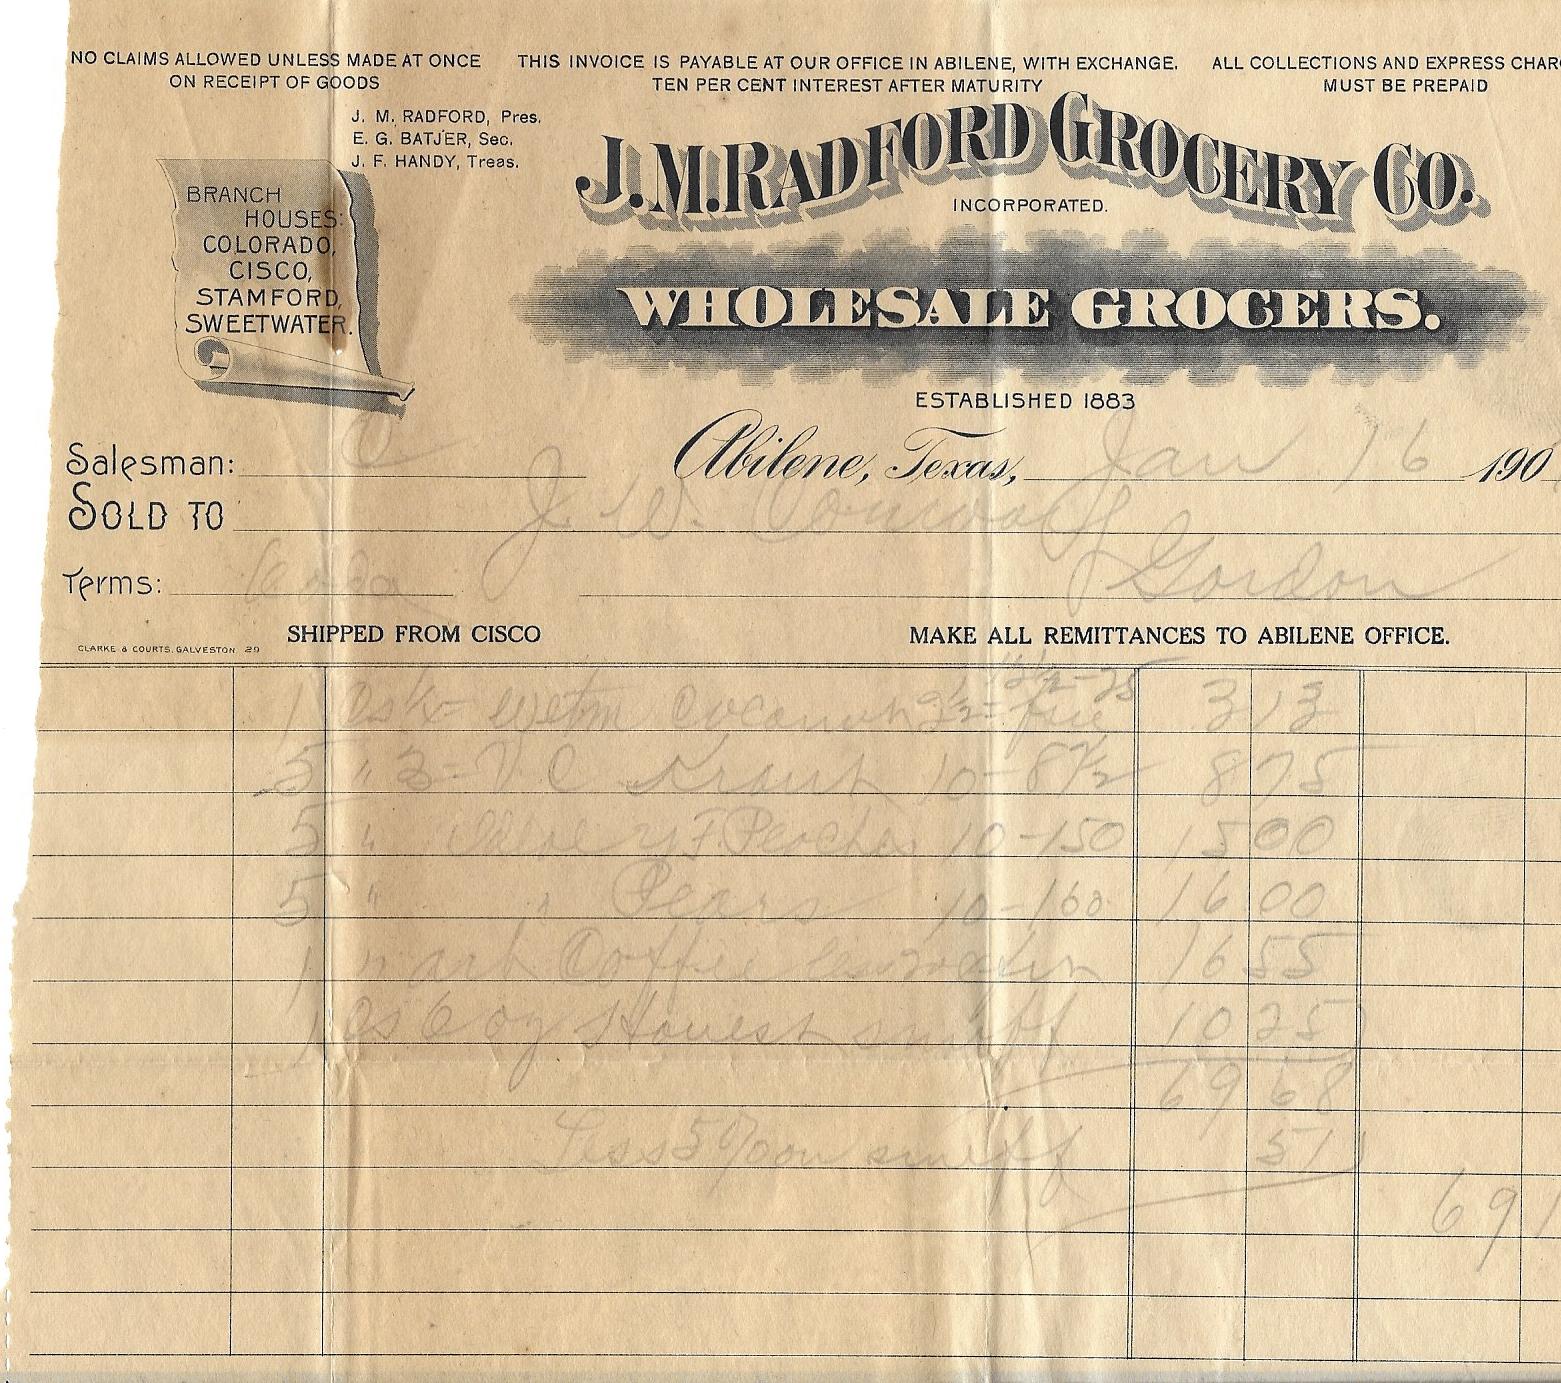 NO CLAIMS ALLOWED UNLESS MADE AT ONCE
ON RECEIPT OF GOODS
THIS INVOICE IS PAYABLE AT OUR OFFICE IN ABILENE, WITH EXCHANGE.
TEN PER CENT INTEREST AFTER MATURITY
ALL COLLECTIONS AND EXPRESS CHAR
MUST BE PREPAID
J. M. RADFORD, Pres.
E. G. BATJER, Sec.
J. F. HANDY, Treas.
BRANCH
HOUSES:
COLORADO,
CISCO,
STAMFORD,
SWEETWATER.
J. M. RADFORD GROCERY CO.
INCORPORATED.
WHOLESALE GROCERS.
ESTABLISHED 1883
Salesman:
Abilene, Texas, Jan 16 190
SOLD TO J. W.
Gordon
Terms:
SHIPPED FROM CISCO
MAKE ALL REMITTANCES TO ABILENE OFFICE.
CLARKE & COURTS, GALVESTON 29
1 Cs Cocoanut 3 13
5 " 3 = V C Kraut 10 - 87½ 8 75
5 " Y F Peaches 10 - 150 15 00
5 " " Pears 10 - 160 16 00
1 " Coffee 16 55
1 Cs 6 oz Honest snuff 10 25
69 68
Less 5% on snuff 51
69 1